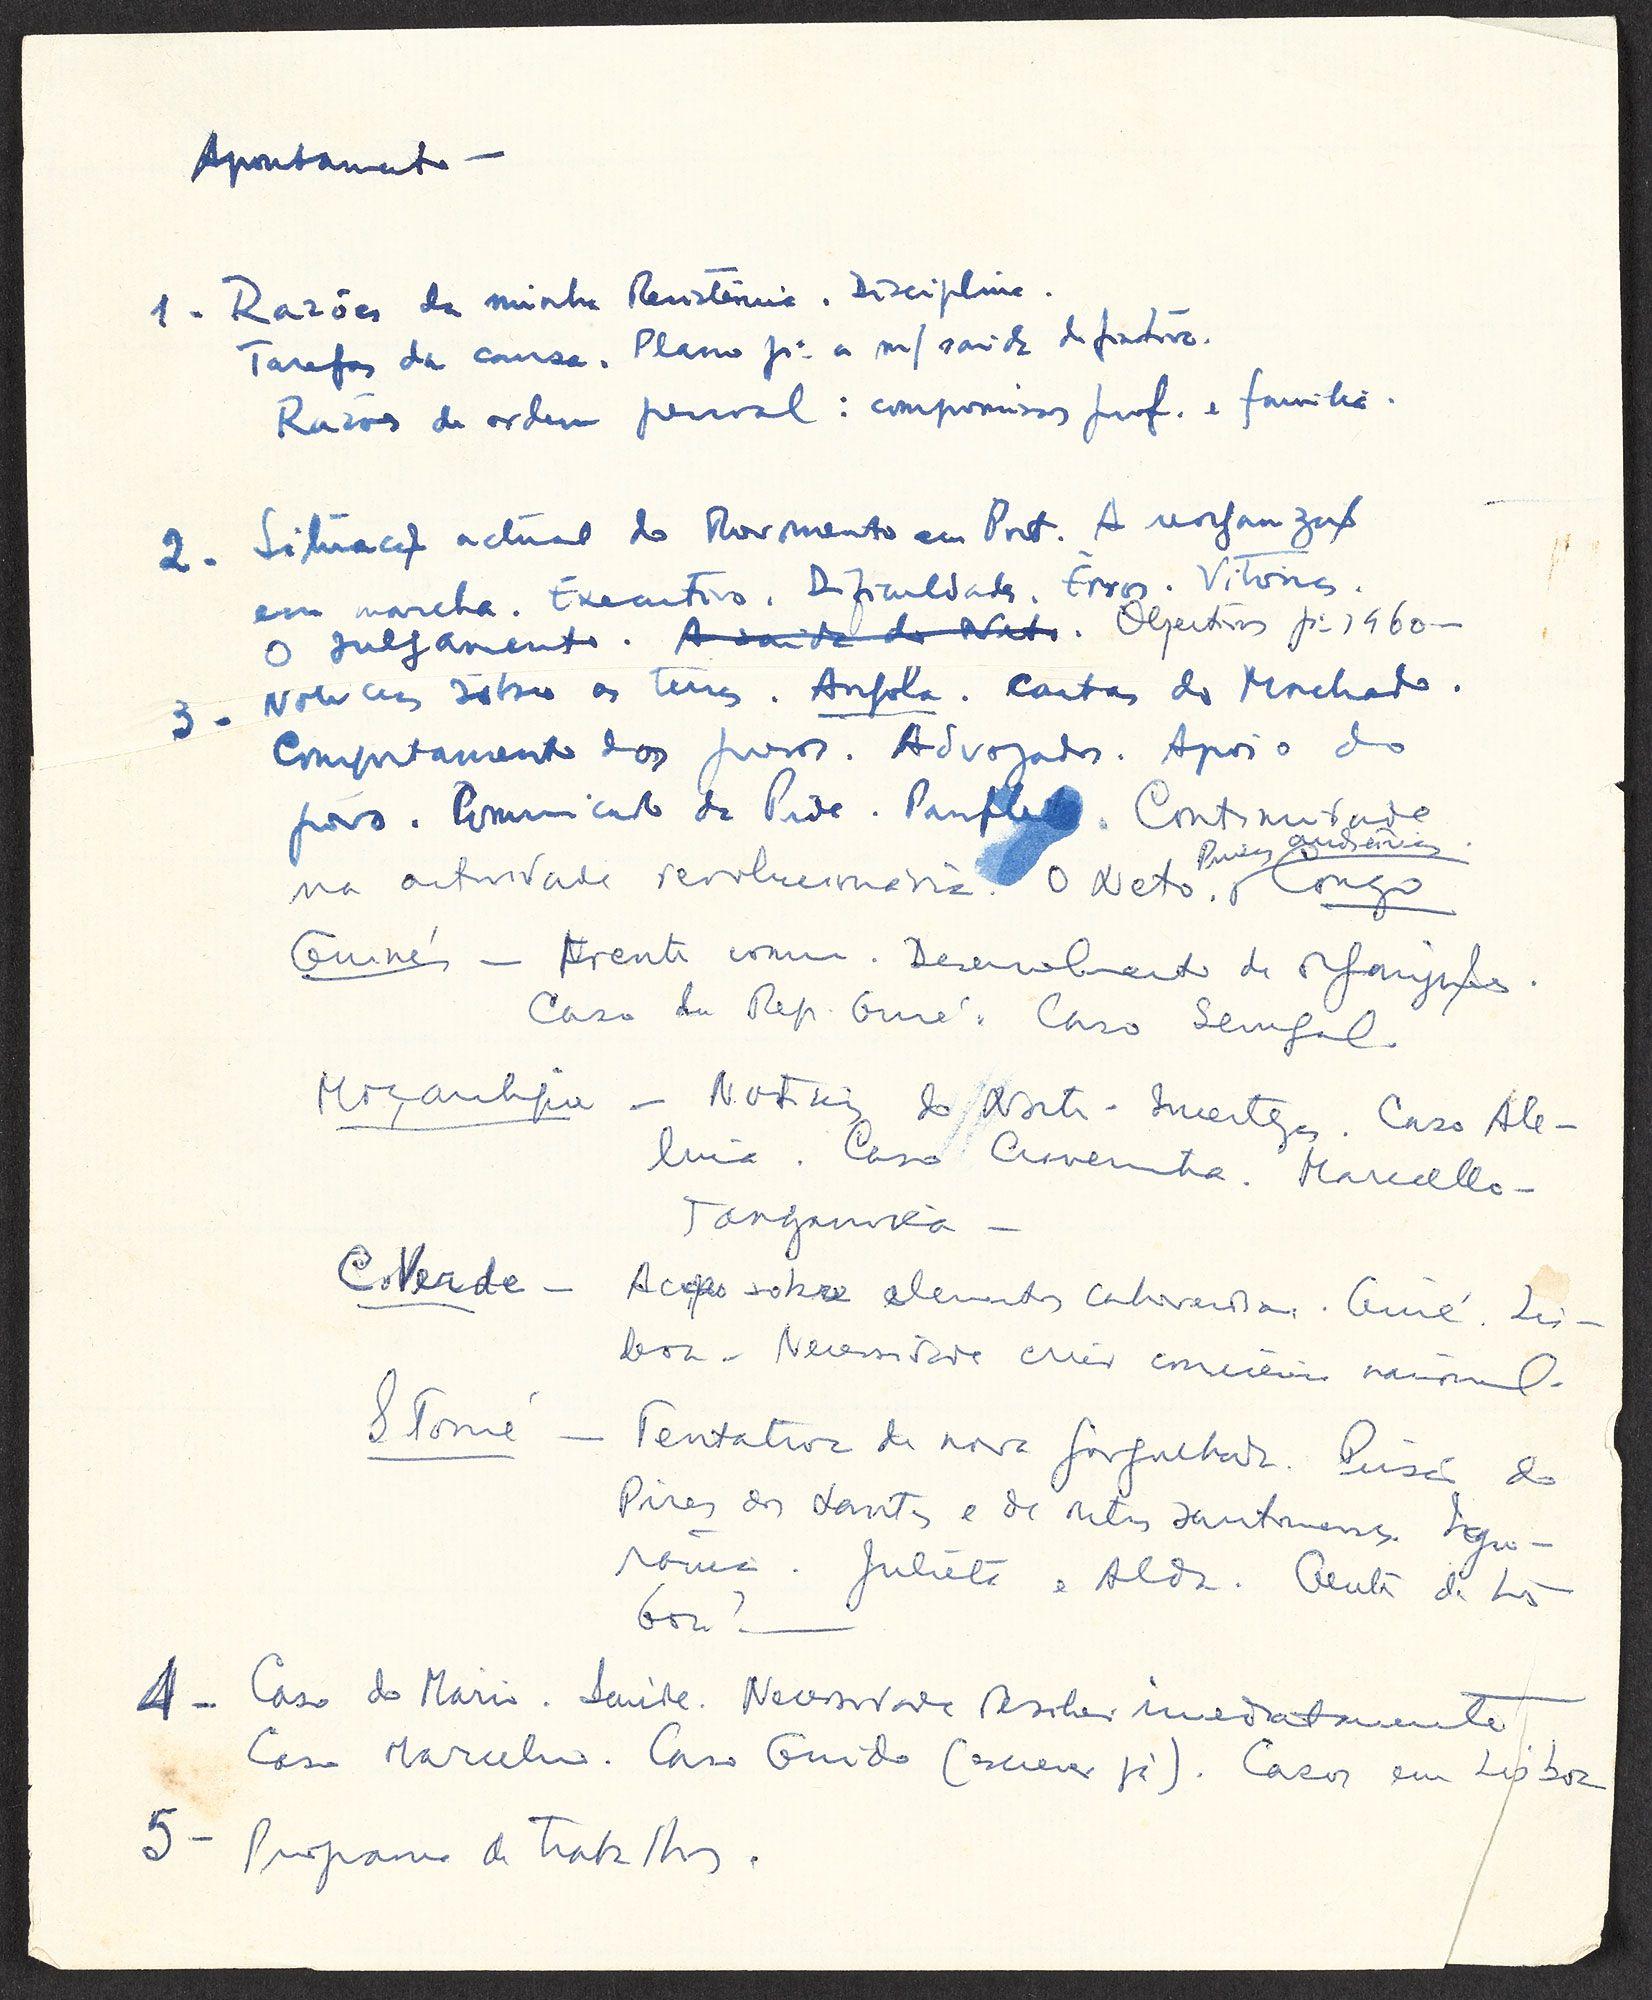 Apontamento —
1 - Razões da minha Resistência. Disciplina.
Tarefas da causa. Plano pª a m/ saida definitiva.
Razões de ordem pessoal: compromissos prof. e familia.
2 - Situação actual do Movimento em Port. A reorganização
em marcha. Executivo. Dificuldades. Erros. Vitórias.
O Julgamento. A saida do Neto. Objectivos pª 1960 —
3 - Noticias sôbre as terras. Angola. Cartas do Machado.
Comportamento dos presos. Advogados. Apoio do
povo. Comunicado da Pide. Panfletos. Continuidade
Prisões
na actividade revolucionária. O Neto. O Congo
Guiné — Frente comum. Desenvolvimento da organização.
Caso da Rep. Guiné. Caso Senegal.
Moçambique — Noticias do Norte. Incertezas. Caso Ale-
luia. Caso Craveirinha. Marcelino -
Tanganika —
C. Verde — Acção sobre elementos caboverdianos. Guiné. Lis-
boa - Necessidade criar consciência nacional.
S. Tomé — Tentativa de nova gorgulhada. Prisão do
Pires dos Santos e de outros santomenses. Segu-
rança. Julieta e Alda. Gente de Lis-
boa?
4 - Caso do Mario. Saúde. Necessidade resolver imediatamente
Caso Marcelino. Caso Guido (escrever já). Casos em Lisboa
5 - Programa de trabalhos.